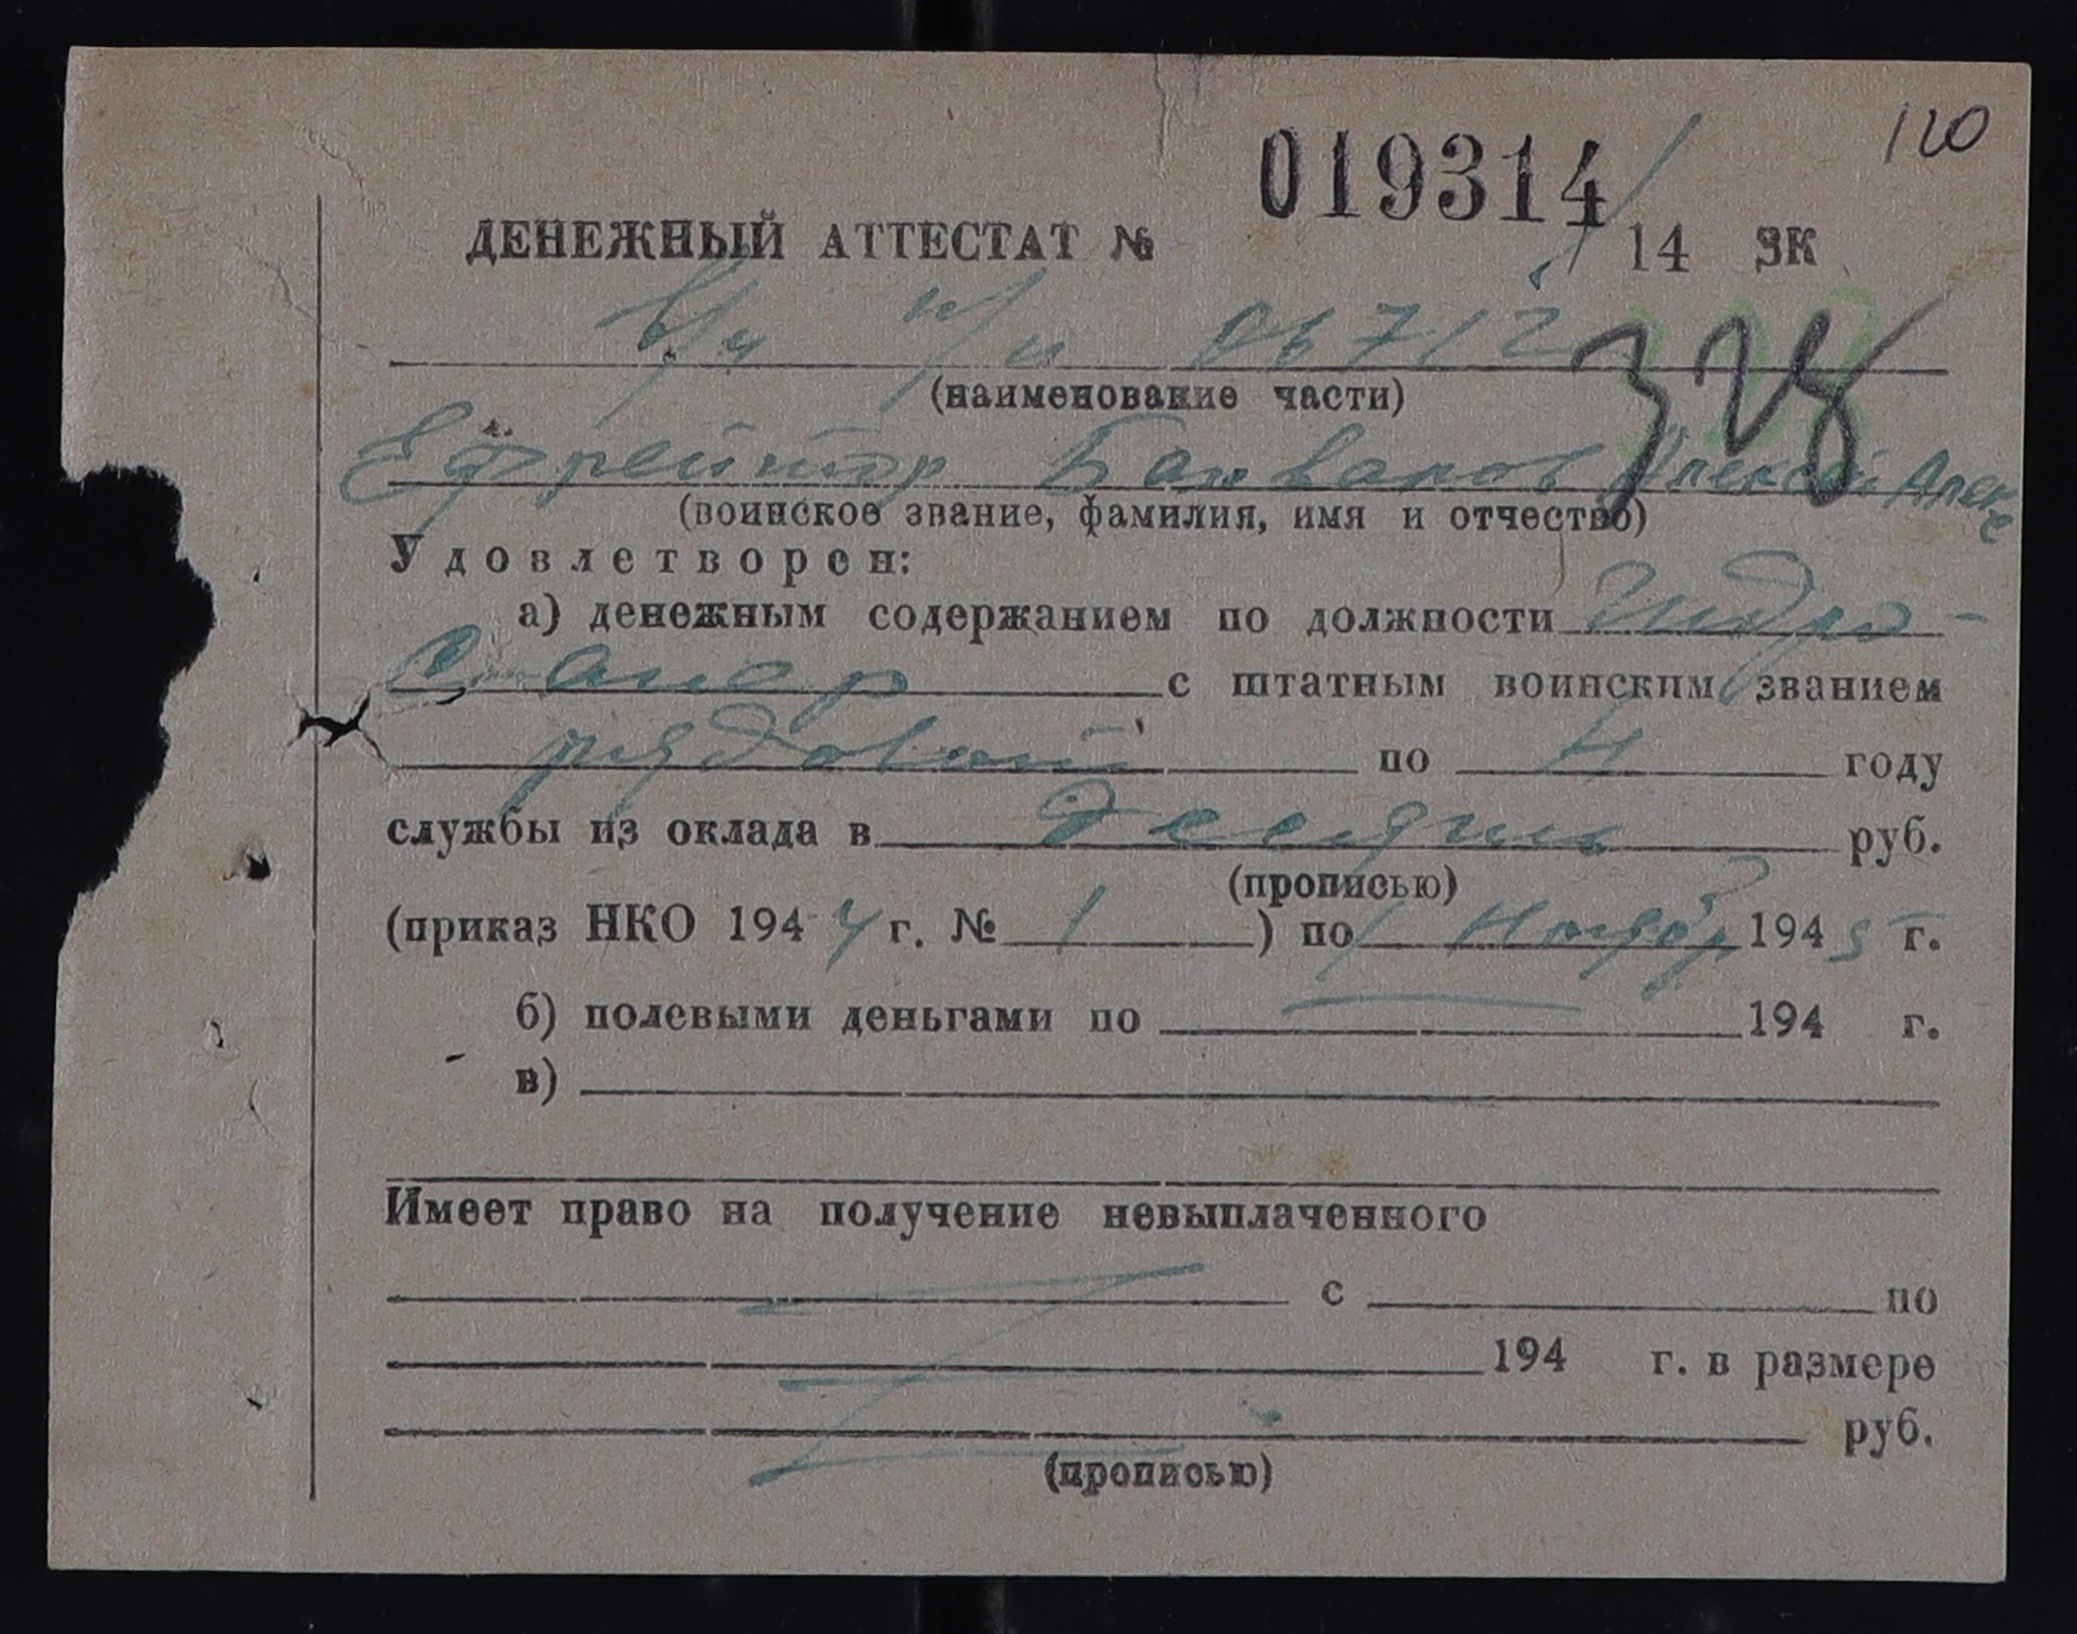 120
019314/
ДЕНЕЖНЫЙ АТТЕСТАТ № 14 ЗК
в/ч п/п 06712
328
(наименование части)
Ефрейтор Алексей Алекс
(воинское звание, фамилия, имя и отчество)
Удовлетворен:
а) денежным содержанием по должности Гидро-
Сапер с штатным воинским званием
рядовой по 4 году
службы из оклада в руб.
(прописью)
(приказ НКО 1944 г. № 1 ) по 1 Ноябр 1945 г.
б) полевыми деньгами по 194 г.
в)
Имеет право на получение невыплаченного
с по
194 г. в размере
руб.
(прописью)